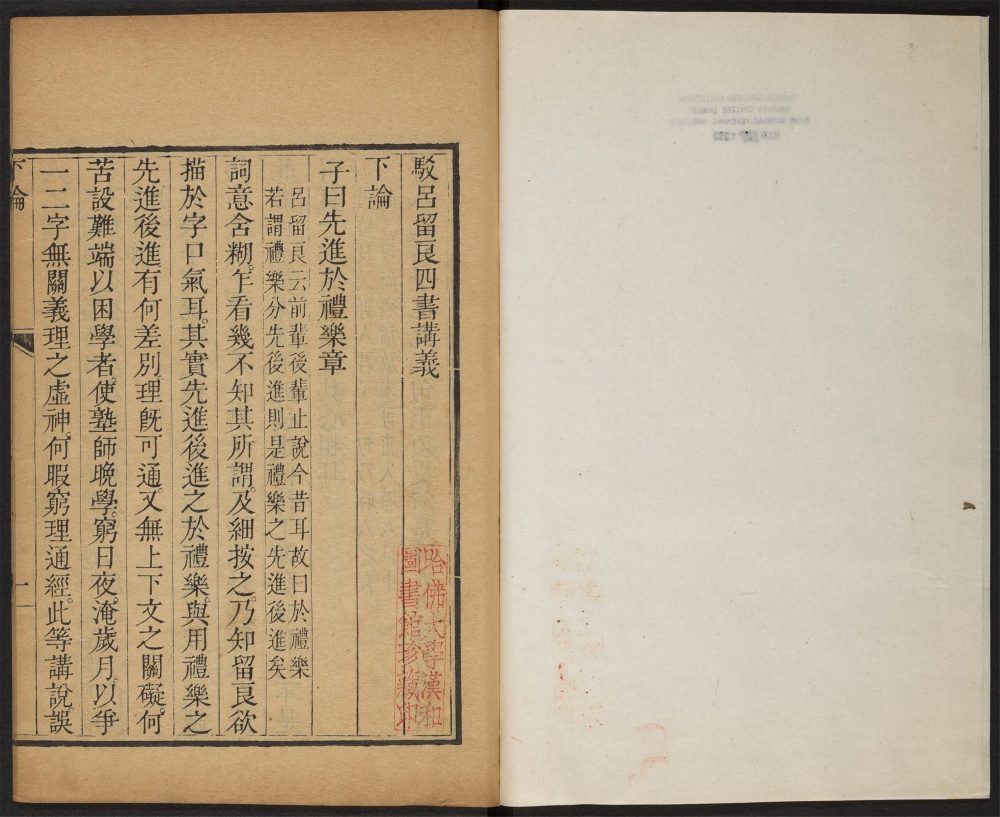 駁呂留良四書講義
下論
子曰先進於禮樂章
呂留良云前輩後輩止說今昔耳故曰於禮樂
若謂禮樂分先後進則是禮樂之先進後進矣
詞意含糊。乍看幾不知其所謂。及細按之。乃知留良欲
描於字口氣耳。其實先進後進之於禮樂。與用禮樂之
先進後進。有何差別。理既可通。又無上下文之關礙。何
苦設難端以困學者。使塾師晚學。窮日夜。淹歲月。以爭
一二字無關義理之虛神。何暇窮理通經。此等講說。誤
下論
一
哈佛大學漢和
圖書館珍藏印